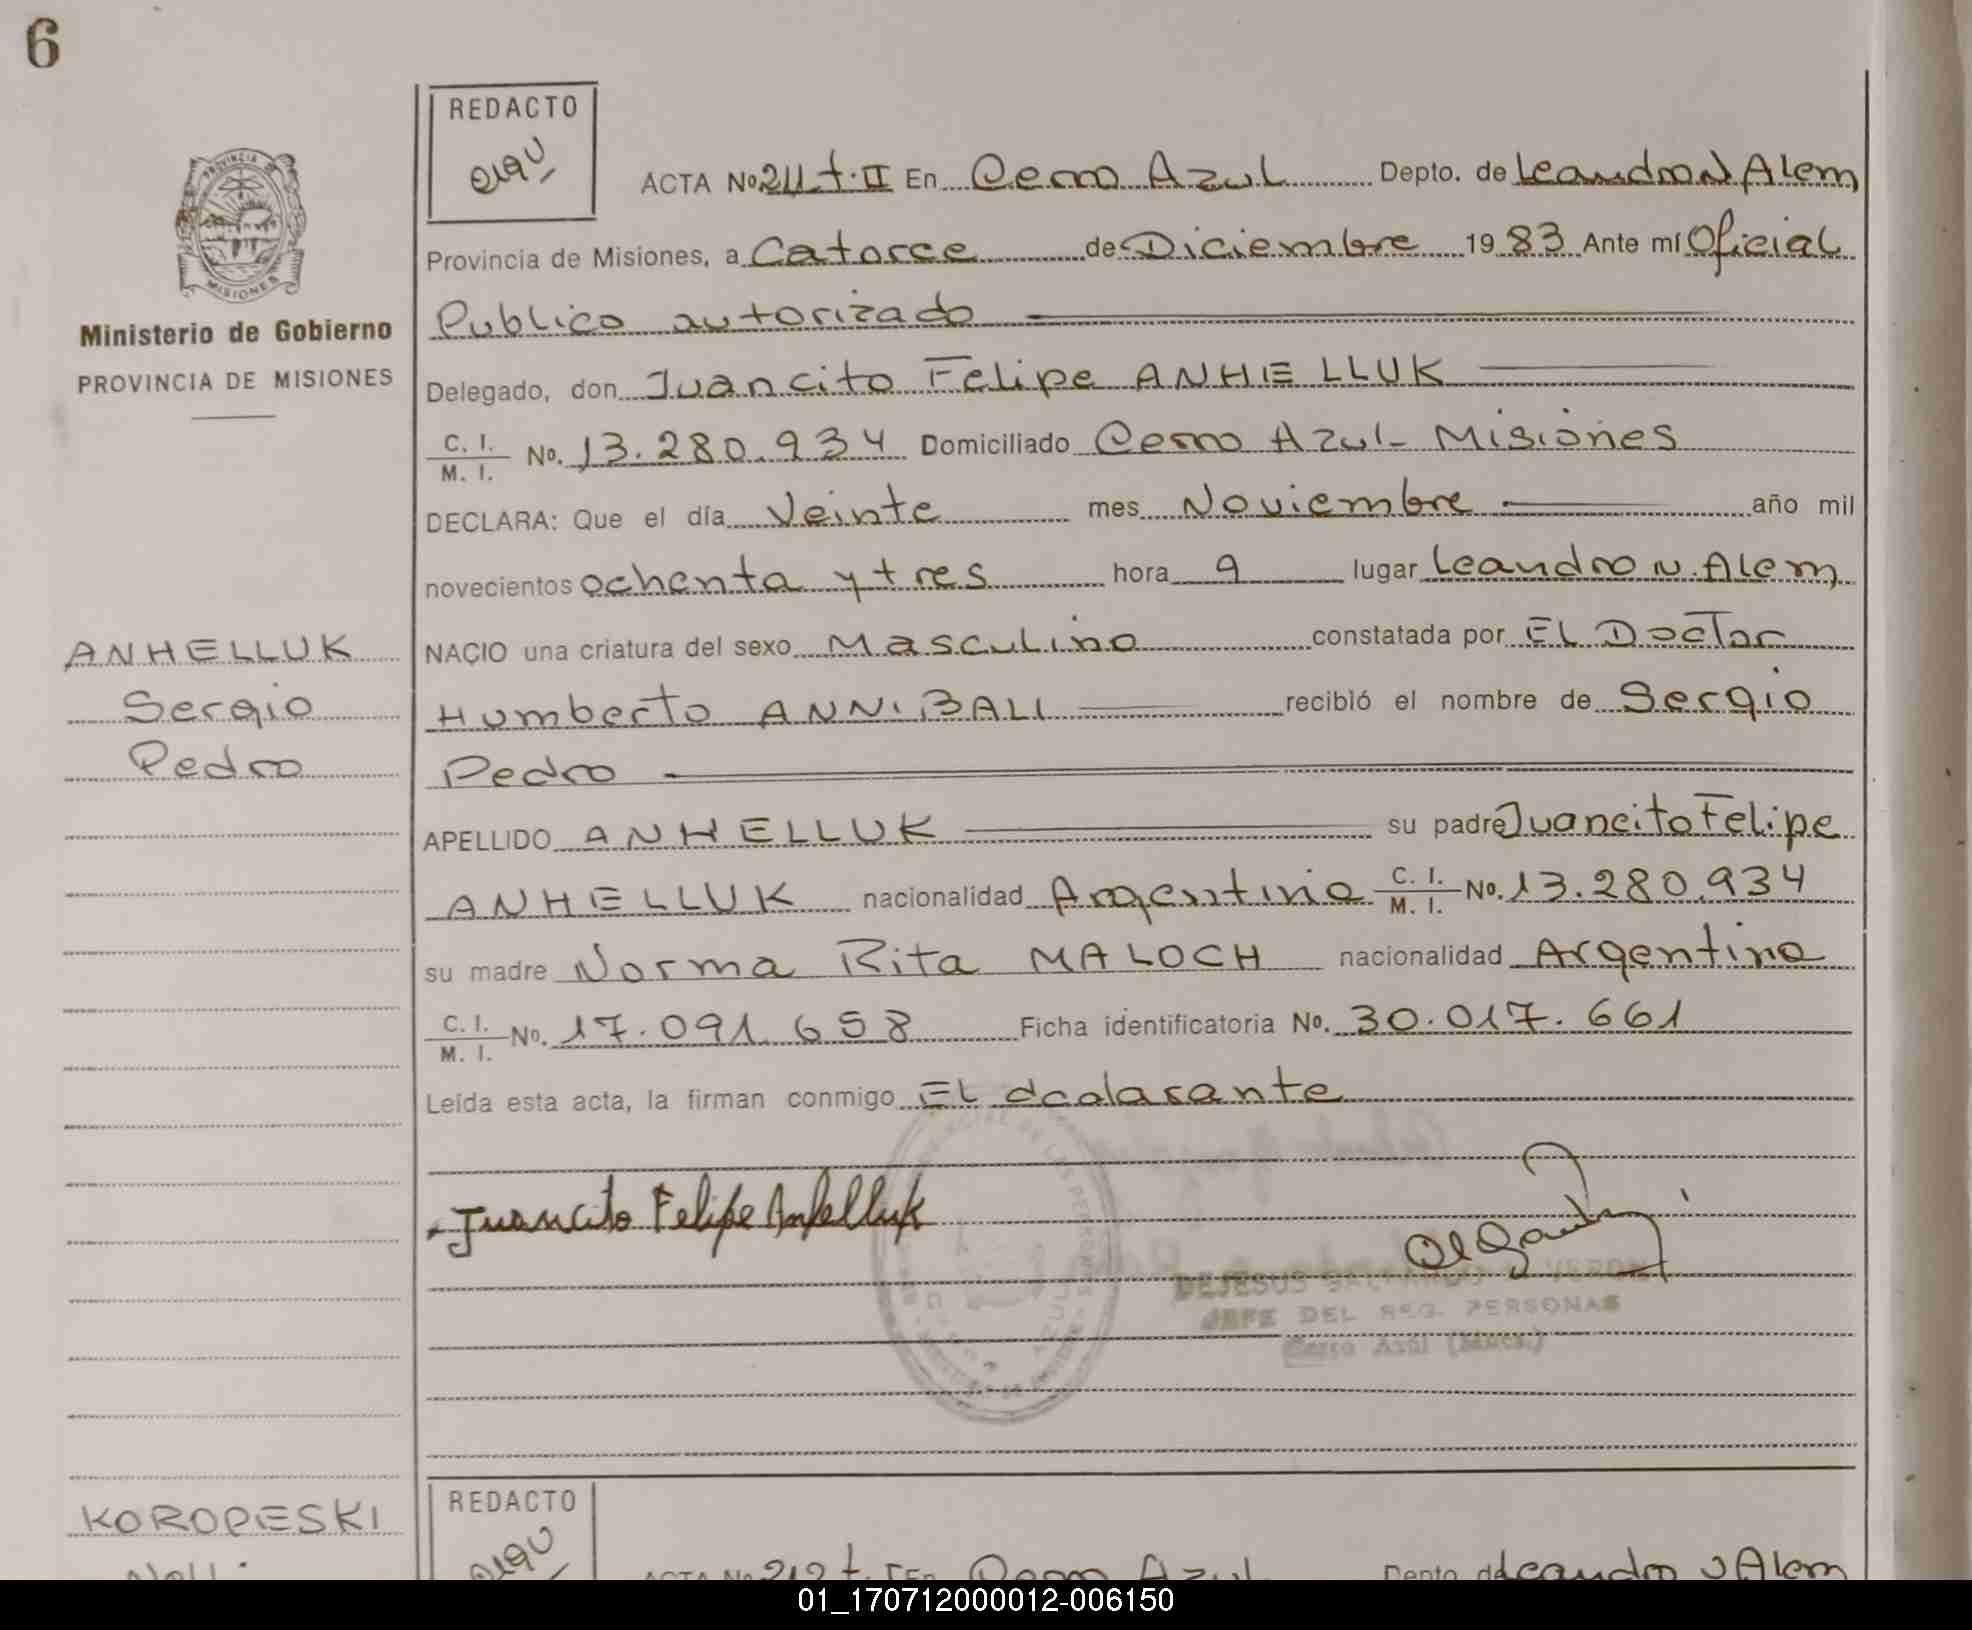 6
REDACTO
ACTA No 211 t. II En Cerro Azul Depto. de Leandro N Alem
Provincia de Misiones, a Catorce de Diciembre 1983 Ante mí Oficial
Publico autorizado
Delegado, don Juancito Felipe ANHELLUK
C. I.
M. I. No. 13.280.934 Domiciliado Cerro Azul - Misiones
DECLARA: Que el día Veinte mes Noviembre año mil
novecientos ochenta y tres hora 9 lugar Leandro N. Alem
NACIO una criatura del sexo Masculino constatada por El Doctor
Humberto ANNIBALI recibió el nombre de Sergio
Pedro
APELLIDO ANHELLUK su padre Juancito Felipe
ANHELLUK nacionalidad Argentina C. I. M. I. No. 13.280.934
su madre Norma Rita MALOCH nacionalidad Argentina
C. I.
M. I. No. 17.091.658 Ficha identificatoria No. 30.017.661
Leída esta acta, la firman conmigo El declarante
Juancito Felipe Anhelluk
DEJESUS VERON
JEFE DEL REG. PERSONAS
Cerro Azul (Mnes.)
PROVINCIA DE
MISIONES
Ministerio de Gobierno
PROVINCIA DE MISIONES
ANHELLUK
Sergio
Pedro
KOROPESKI
REDACTO
ACTA No 212 t. En Cerro Azul Depto. de Leandro N Alem
01_170712000012-006150